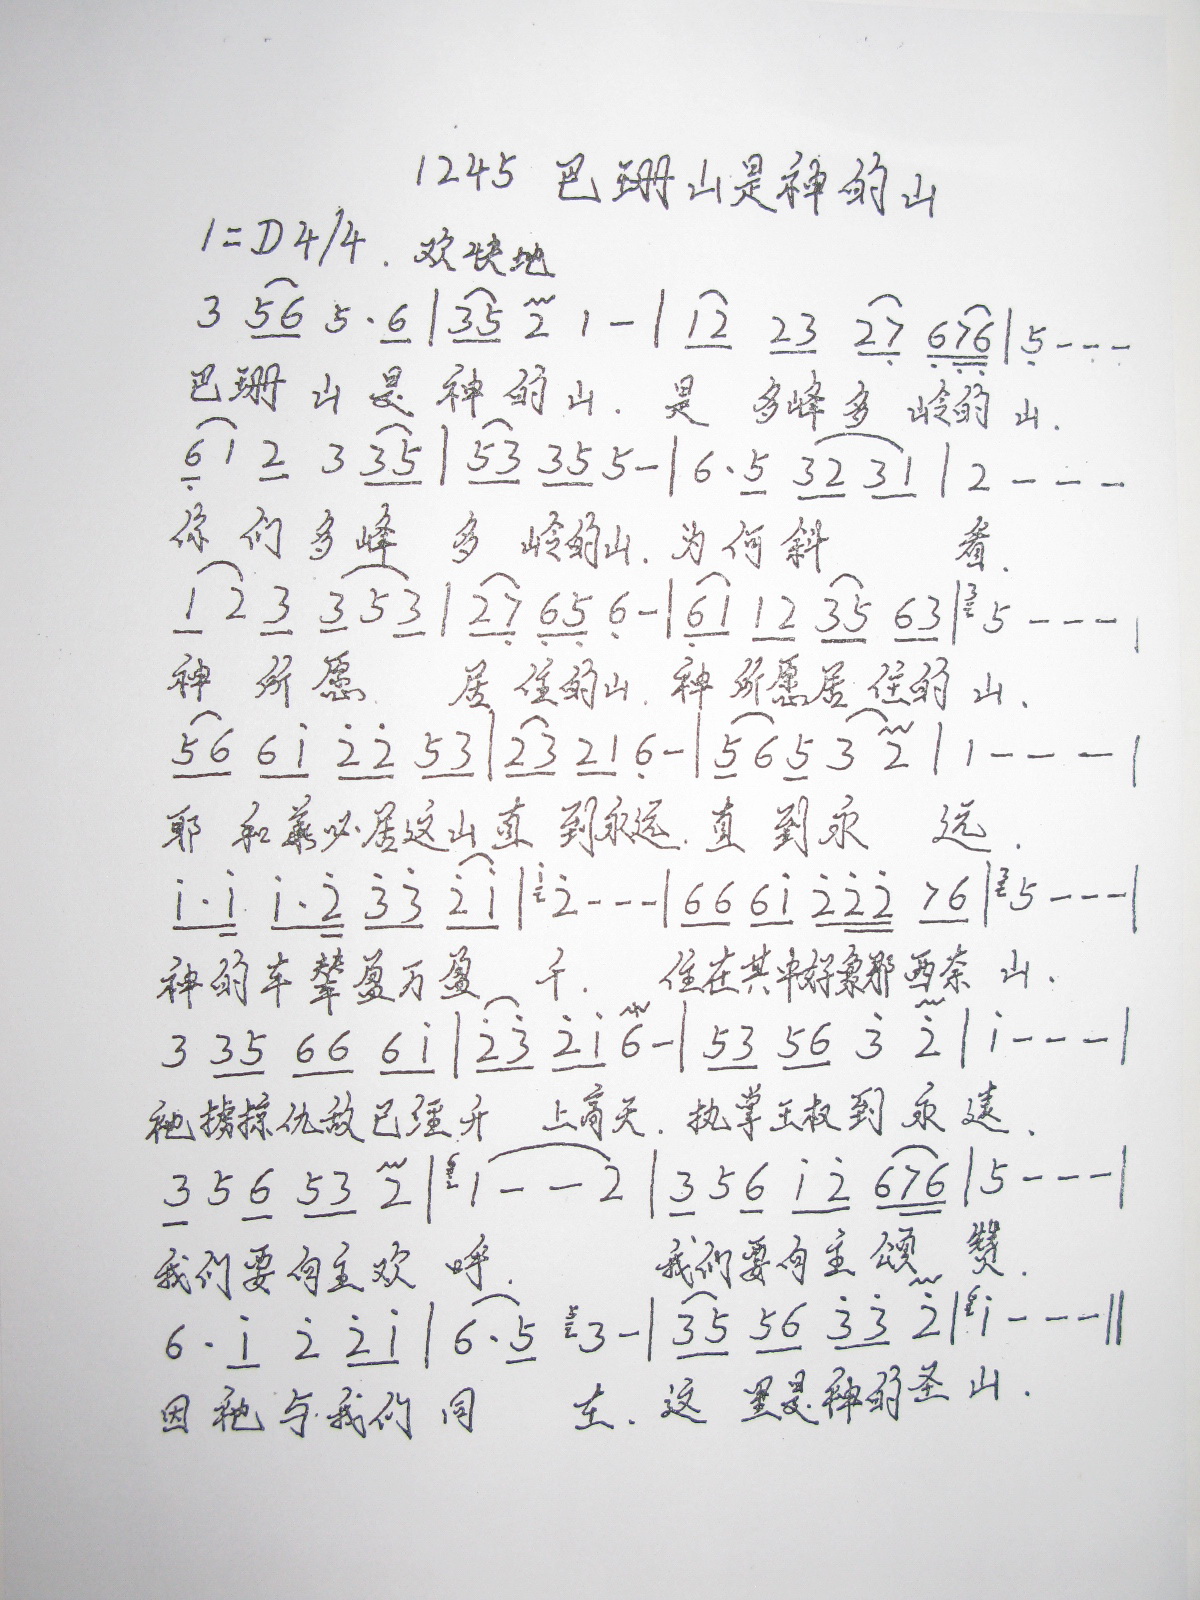 1245 巴珊山是神的山
1=D 4/4. 欢快地
3 56 5·6 | 35 2 1 – | 12 23 27 676 | 5 – – –
巴珊山是神的山. 是多峰多岭的山.
61 2 3 35 | 53 35 5 – | 6·5 32 31 | 2 – – –
你们多峰多岭的山. 为何斜看.
1 2 3 3 5 3 | 27 65 6 – | 61 12 35 63 | 3 5 – – – |
神所愿居住的山. 神所愿居住的山.
56 6i 22 53 | 23 21 6 – | 5 6 5 3 2 | 1 – – – |
耶和华必居这山直到永远. 直到永远.
i·i i·2 33 2i | i 2 – – – | 66 6i 222 76 | 3 5 – – – |
神的车辇盈万盈千. 住在其中好象那西奈山.
3 35 66 6i | 23 2i 6 – | 53 56 3 2 | i – – – |
祂掳掠仇敌已经升上高天. 执掌王权到永远.
3 5 6 53 2 | 1 – – 2 | 3 5 6 i2 676 | 5 – – – |
我们要向主欢呼. 我们要向主颂赞.
6·i 2 2i | 6·5 3 – | 35 56 33 2 | i – – – ‖
因祂与我们同在. 这里是神的圣山.